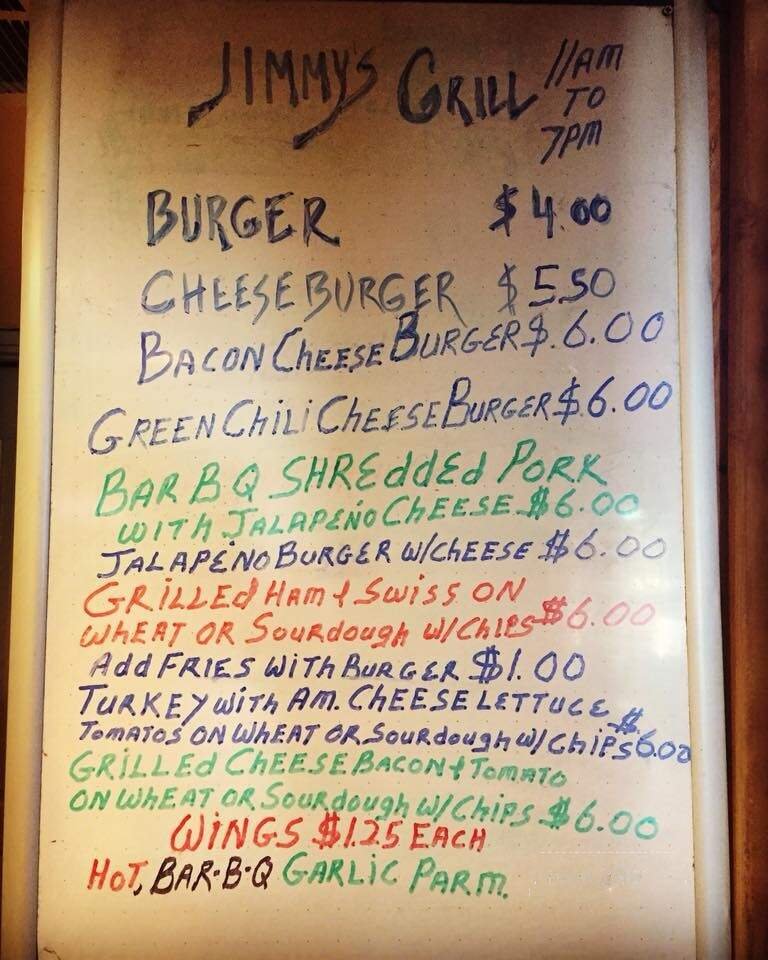 JIMMY'S GRILL 11AM
TO
7PM
BURGER $4.00
CHEESEBURGER $5.50
BACON CHEESE BURGER $.6.00
GREEN CHILI CHEESE BURGER $.6.00
BAR B Q SHREddEd PORK
WITH JALAPEÑO CHEESE $6.00
JALAPEÑO BURGER W/CHEESE $6.00
GRILLEd HAM & SWISS ON
WHEAT OR SOURdough W/CHIPS $6.00
Add FRIES WITH BURGER $1.00
TURKEY WITH AM. CHEESE LETTUCE $
TOMATOS ON WHEAT OR SOURdough W/CHIPS 6.00
GRILLEd CHEESE BACON & TOMATO
ON WHEAT OR SOURdough W/CHIPS $6.00
WINGS $1.25 EACH
HOT, BAR-B-Q GARLIC PARM.